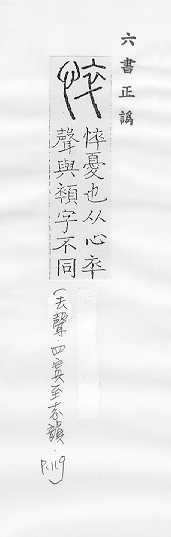 六書正譌
悴
悴憂也从心卒
聲與顇字不同
(去聲.四寘至志韻.P.119)